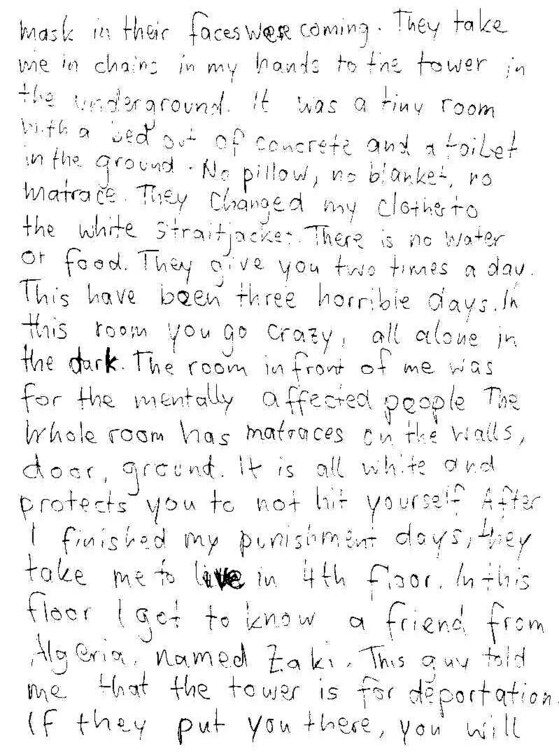 mask in their faces were coming. They take
me in chains in my hands to the tower in
the underground. It was a tiny room
with a bed out of concrete and a toilet
in the ground. No pillow, no blanket, no
matrace. They changed my clothes to
the white straitjacket. There is no water
or food. They give you two times a day.
This have been three horrible days. In
this room you go crazy, all alone in
the dark. The room in front of me was
for the mentally affected people The
whole room has matraces on the walls,
door, ground. It is all white and
protects you to not hit yourself After
I finished my punishment days, they
take me to live in 4th floor. In this
floor I get to know a friend from
Algeria, named Zaki. This guy told
me that the tower is for deportation.
If they put you there, you will